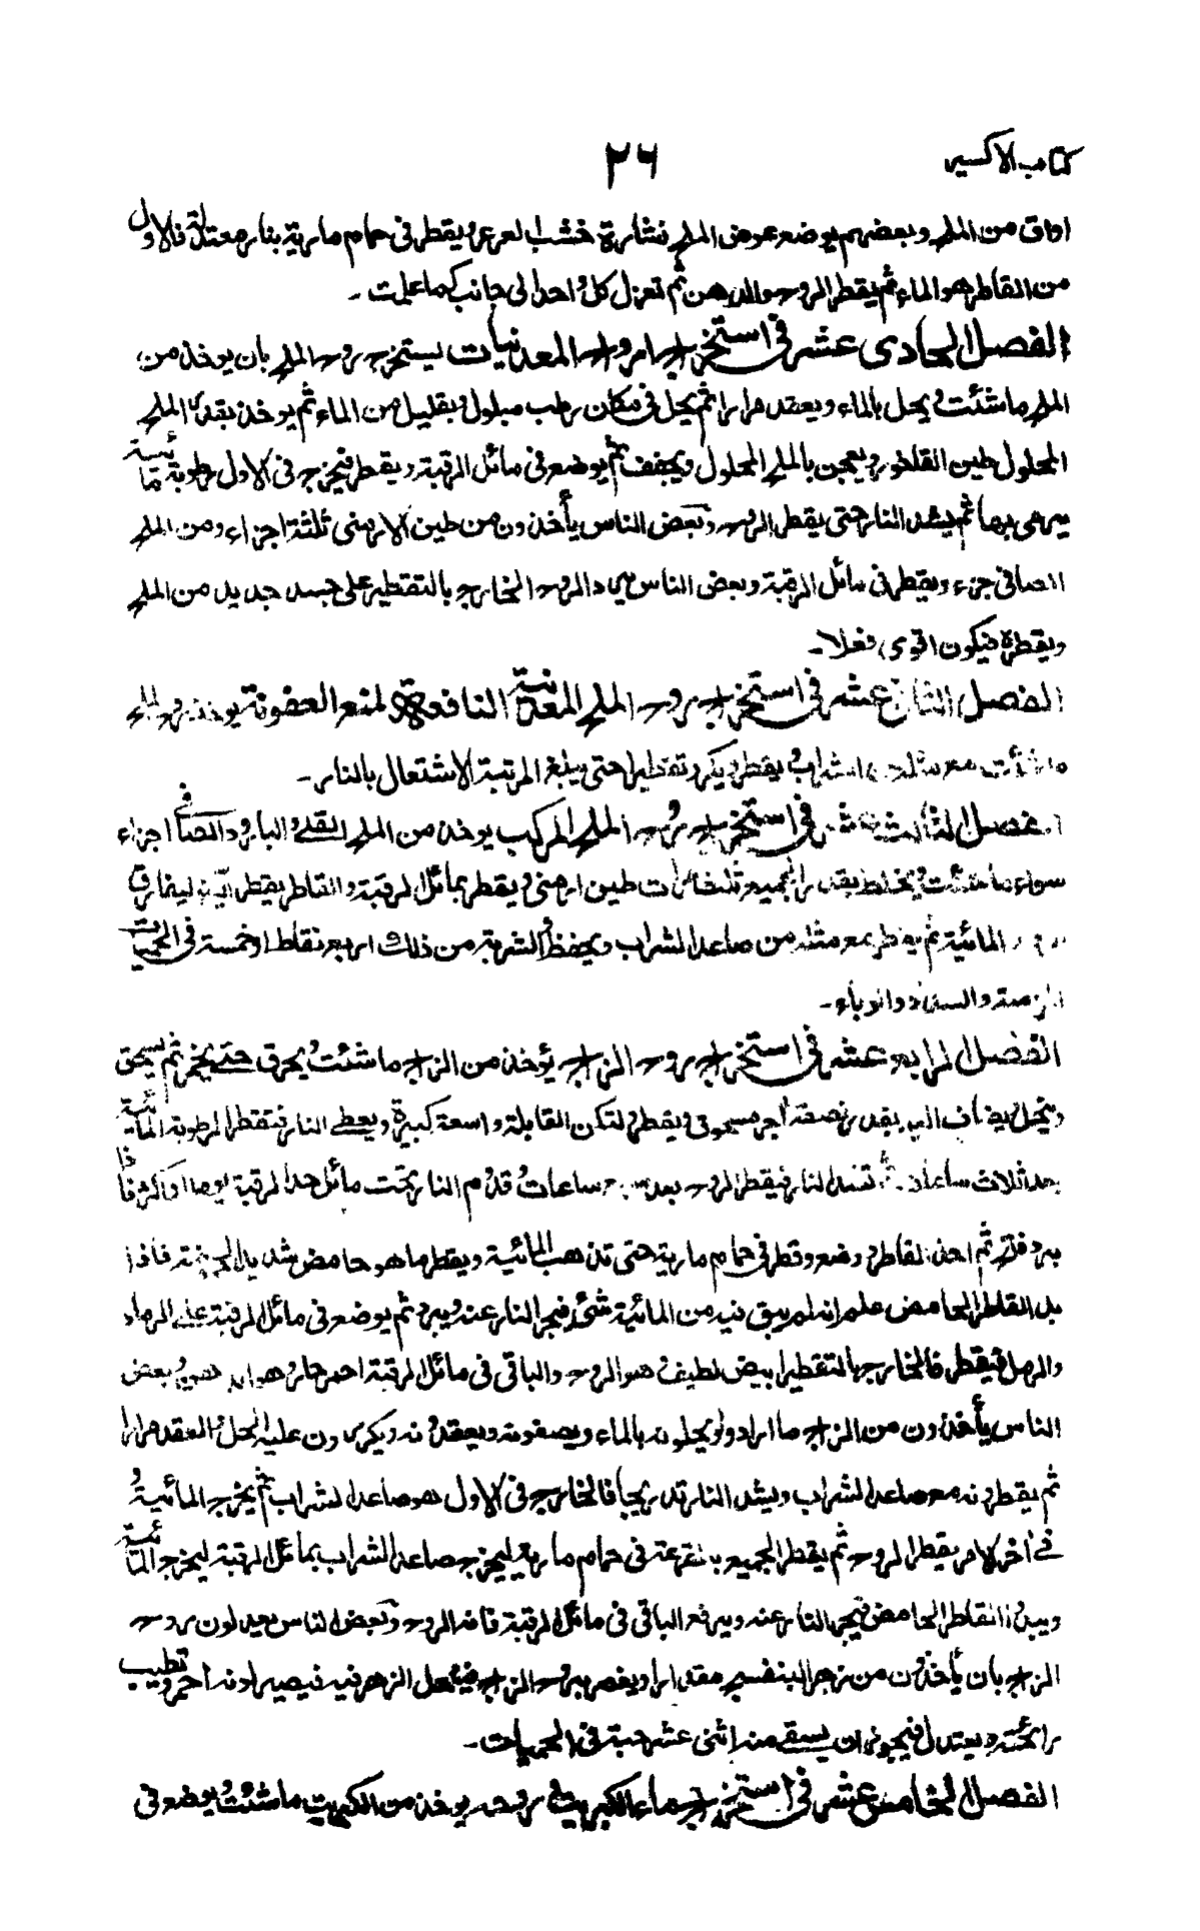 كتاب الاكسير
٢٦
اواق من الملح وبعضهم يوضع عوض الملح نشارة خشب العرعر ويقطر فى حمام مارية بنار معتدلة فالاول
من القاطر هو الماء ثم يقطر الروح والدهن ثم تعزل كل واحد الى جانب كما علمت -
الفصل الحادى عشر فى استخراج ارواح المعدنيات يستخرج روح الملح بان يوخذ من
الملح ما شئت ويحل بالماء ويعقد مرارا ثم يحل فى مكان رطب مبلول وبقليل من الماء ثم يوخذ بقدر الملح
المحلول طين القلخور ويعجن بالملح المحلول ويجفف ثم يوضع فى مائل الرقبة ويقطر فيخرج فى الاول رطوبة مائية
يرمى بها ثم يشد النار حتى يقطر الروح وبعض الناس يأخذون من طين الارمنى ثلثة اجزاء ومن الملح
الصافى جزء ويقطر فى مائل الرقبة وبعض الناس يرد الروح الخارج بالتقطير على جسد جديد من الملح
ويقطره فيكون اقوى فعلا -
الفصل الثانى عشر فى استخراج روح الملح المعدنية النافعة لمنع العفونة يوخذ روح الملح
ما شئت مع مثله من الشراب ويقطر ويكرر تقطيرا حتى يبلغ المرتبة الاشتعال بالنار -
الفصل الثالث عشر فى استخراج روح الملح المركب يوخذ من الملح النقى والبارود الصافى اجزاء
سواء ما شئت ويخلط بقدر الجميع ثلث مرات طين ارمنى ويقطر بمائل الرقبة والقاطر يقطر ليفارق
المائية ثم يقطر مع مثله من صاعد الشراب ويحفظ الشربة من ذلك اربع نقاط او خمسة فى الحميات
المزمنة والوباء -
الفصل الرابع عشر فى استخراج روح الزاج يؤخذ من الزاج ما شئت ويحرق حتى يحمر ثم يسحق
وينخل يضاف اليه بقدر نصفه أجر مسحوق ويقطر ولتكن القابلة واسعة كبيرة ويعطى النار فتقطر الرطوبة المائية
بعد ثلاث ساعات ثم تشد النار فيقطر الروح بعد ساعات وقدوم النار تحت مائل الرقبة يوما او اكثر فاذا
برد فلتر ثم احذ القاطر وضع وقطر فى حمام مارية حتى تذهب المائية ويقطر ما هو حامض شديد الحموضة فاذا
بدا القاطر الحامض علم انه لم يبق فيه من المائية شئ فيجر النار عنه ويبرد ثم يوضع فى مائل الرقبة على الرماد
والرمل فيقطر فالخارج بالتقطير ابيض لطيف هو الروح والباقى فى مائل الرقبة احمر حار هو وبعض
الناس يأخذون من الزاج ما ارادوا ويحلونه بالماء ويصفونه ويعقدونه ويكررون عليه الحل والعقد مرارا
ثم يقطرونه مع صاعد الشراب ويشد النار تدريجا فالخارج فى الاول هو صاعد الشراب ثم يخرج المائية و
فى أخر الامر يقطر الروح ثم يقطر الجميع بالقرعة فى حمام مارية ليخرج صاعد الشراب بمائل الرقبة ليخرج المائية
ويبدأ القاطر الحامض فيجر النار عنه ويرفع الباقى فى مائل الرقبة فانه الروح وبعض الناس يعدلون روح
الزاج بان يأخذون من زهر البنفسج مقدارا ويغمر بروح الزاج فيعمل الزهر فيه فيصير لونه احمر وتطيب
رائحته ويعتدل فيجوز ان يسقى منه اثنى عشر حبة فى الحميات -
الفصل الخامس عشر فى استخراج ماء الكبريت روحه يوخذ من الكبريت ما شئت ويوضع فى